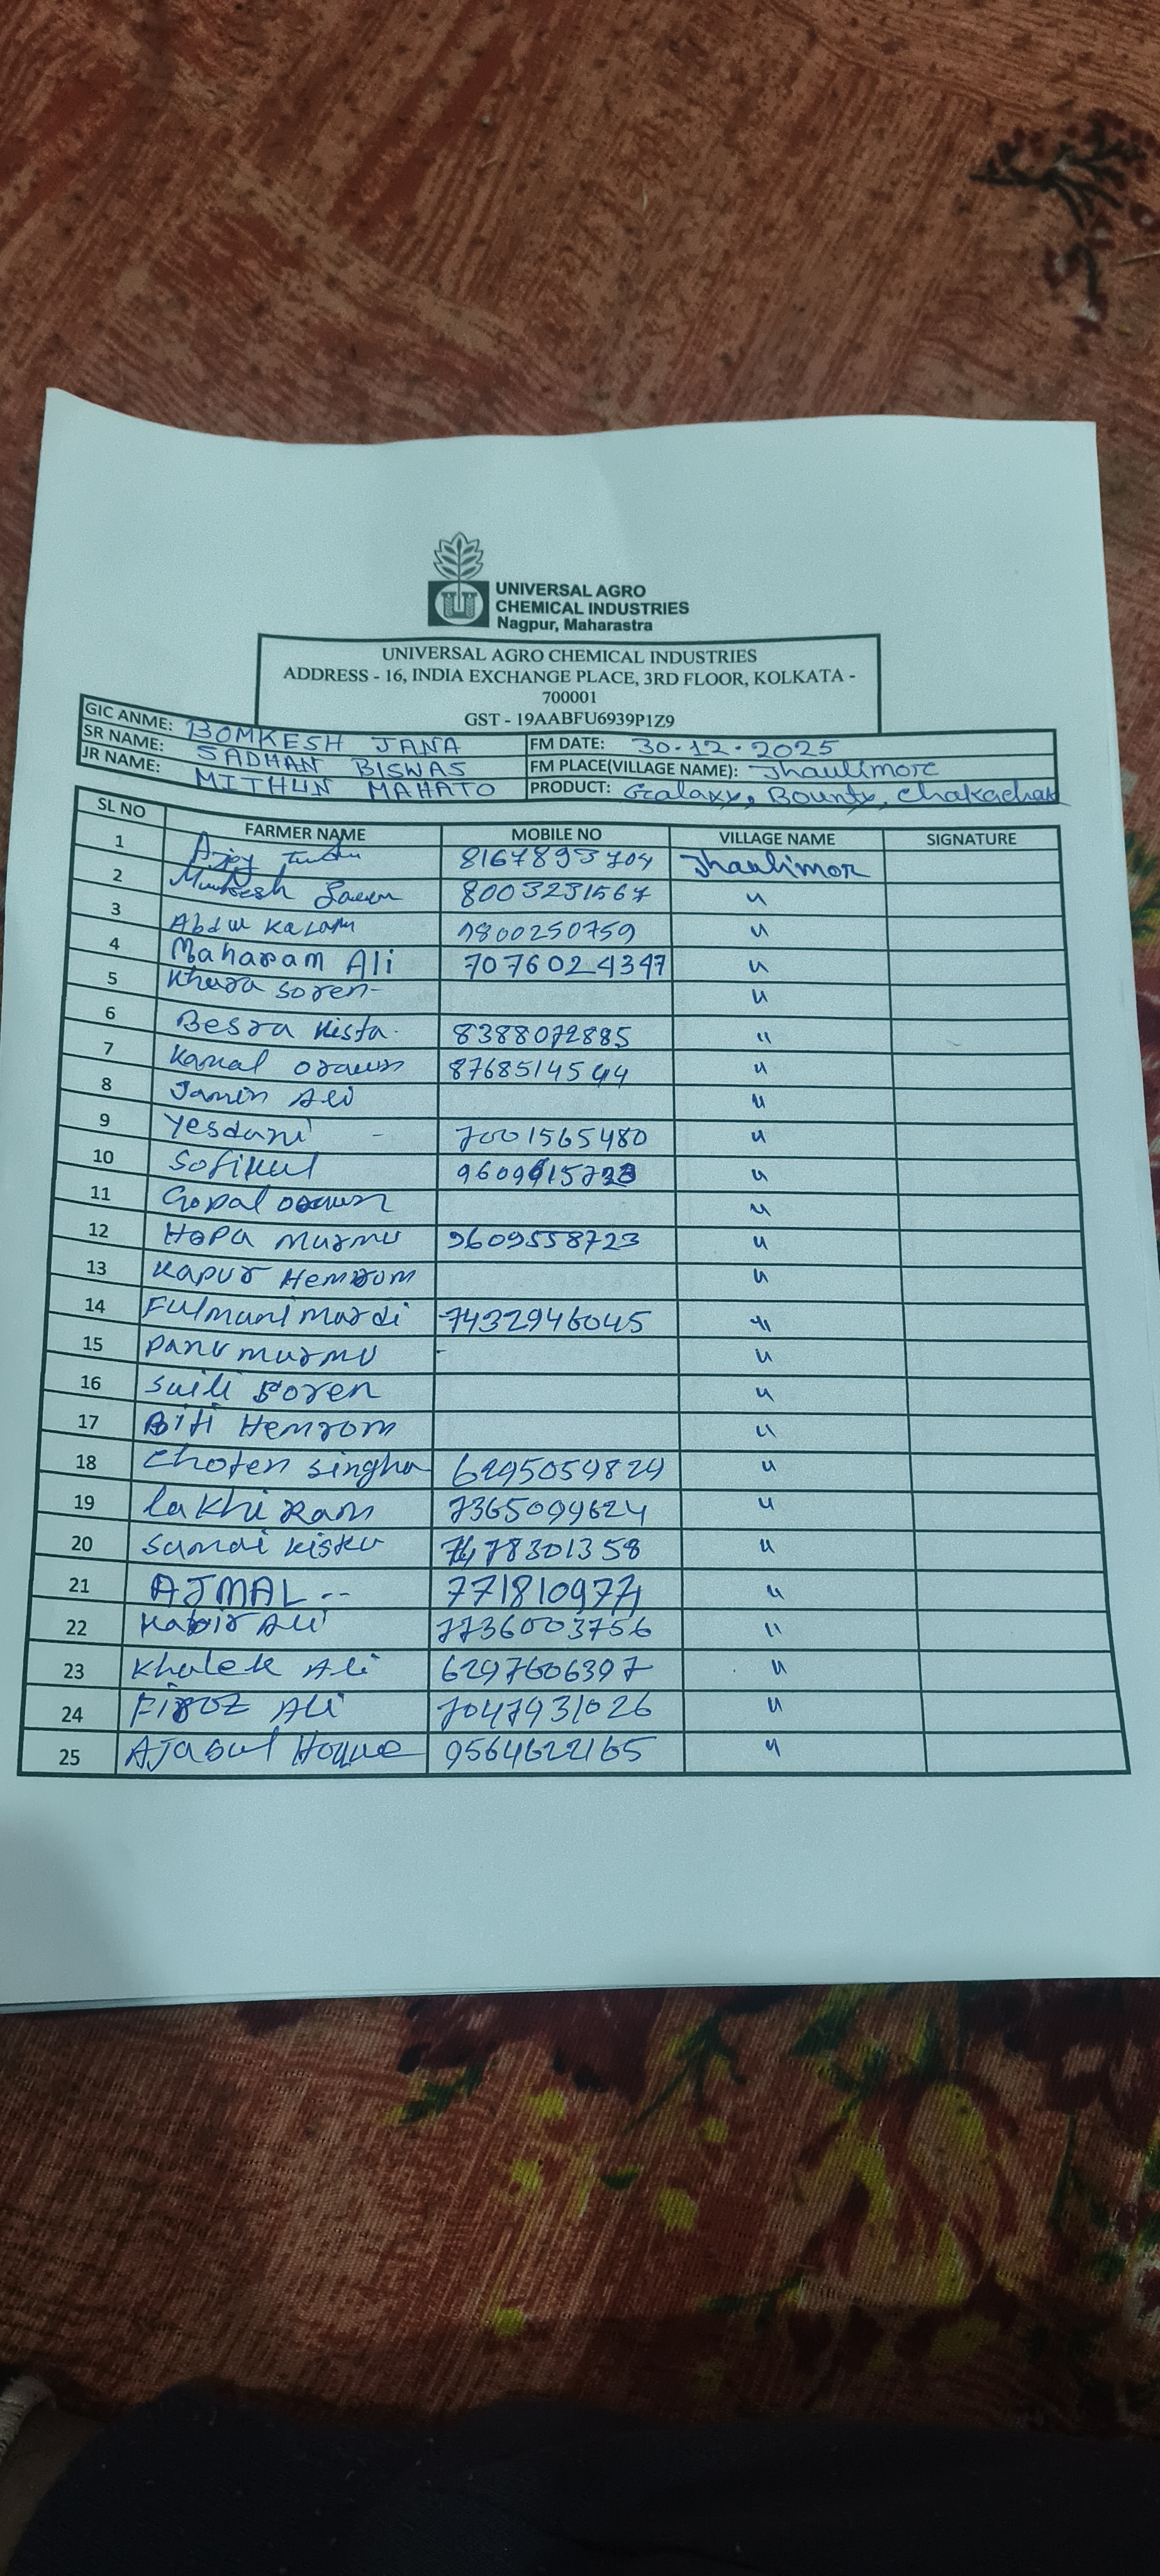 UNIVERSAL AGRO
CHEMICAL INDUSTRIES
Nagpur, Maharastra
UNIVERSAL AGRO CHEMICAL INDUSTRIES
ADDRESS - 16, INDIA EXCHANGE PLACE, 3RD FLOOR, KOLKATA -
700001
GST - 19AABFU6939P1Z9
GIC ANME: BOMKESH JANA
SR NAME: SADHAN BISWAS FM DATE: 30.12.2025
JR NAME: MITHUN MAHATO FM PLACE(VILLAGE NAME): Jhaulimore
PRODUCT: Gralaxy, Bounty, Chakachak
SL NO FARMER NAME MOBILE NO VILLAGE NAME SIGNATURE
1 Ajoy 8167893704 Jhaulimor
2 8003231567 "
3 Abdul Kalam 9800250759 "
4 Maharam Ali 7076024347 "
5 Khura Soren- "
6 Besra Kista. 8388072885 "
7 Kamal oraun 8768514544 "
8 Jamin Ali "
9 Yesdani - 7001565480 "
10 Sofikul "
11 Gopal oraun "
12 Hopa murmu 9609558723 "
13 Kapur Hemrom "
14 Fulmuni mardi 7432946045 "
15 Panu murmu - "
16 Suili Soren "
17 Biti Hemrom "
18 Choten Singha 6295059824 "
19 Lakhi Ram 7365099624 "
20 Samai kisku 7478301358 "
21 AJMAL -- "
22 Kabir Ali 7736003756 "
23 Khalek Ali 6297606397 "
24 Firoz Ali 7047931026 "
25 Ajabul Hoque 9564622165 "